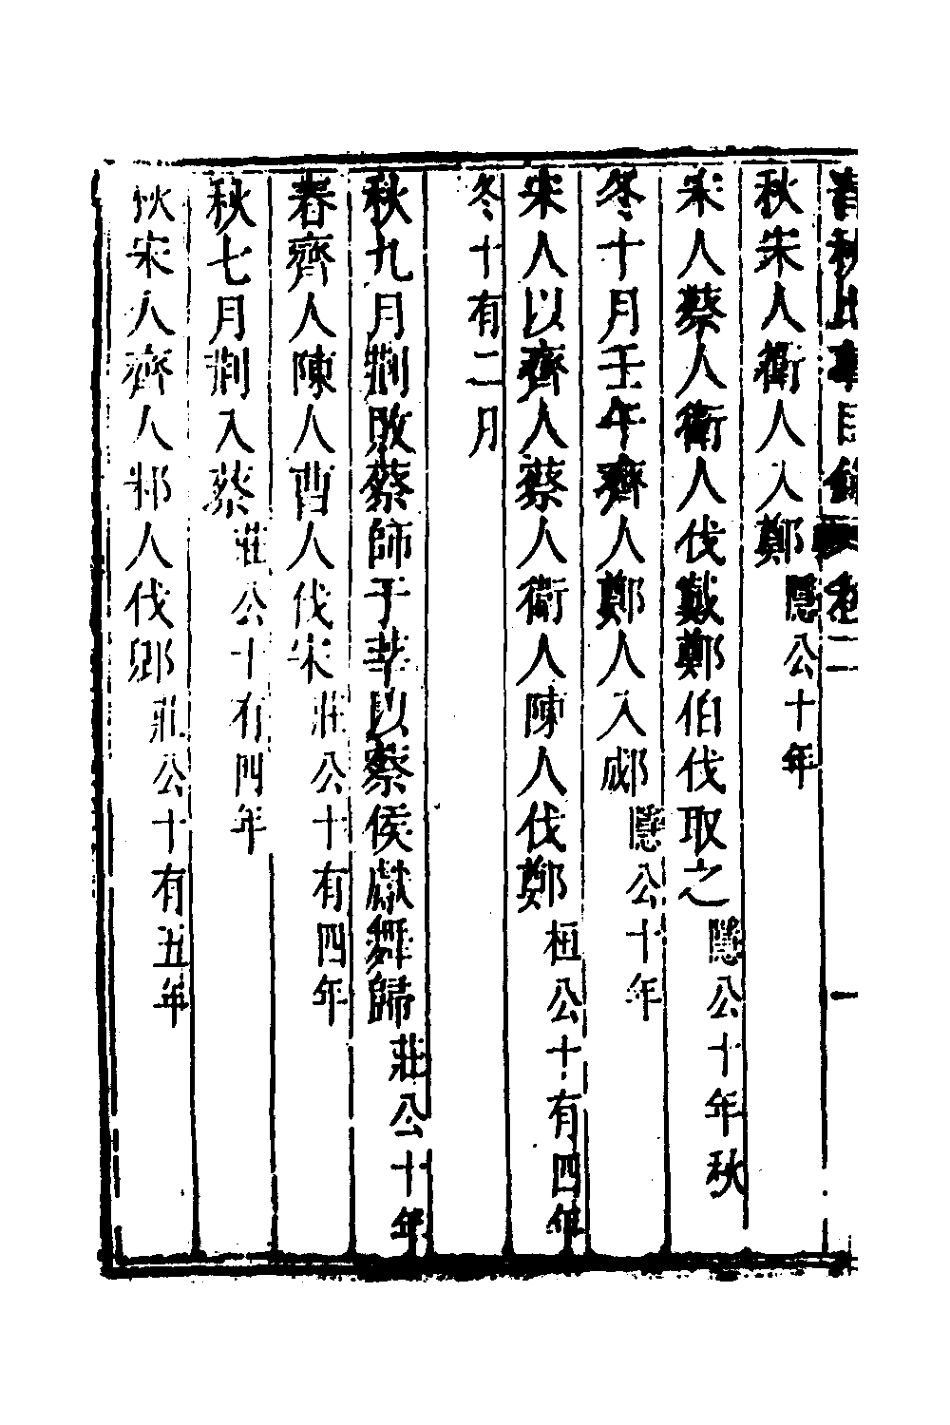 春秋比事目錄卷二
一
秋宋人衛人入鄭隱公十年
宋人蔡人衛人伐戴鄭伯伐取之隱公十年秋
冬十月壬午齊人鄭人入郕隱公十年
宋人以齊人蔡人衛人陳人伐鄭桓公十有四年
冬十有二月
秋九月荆敗蔡師于莘以蔡侯獻舞歸莊公十年
春齊人陳人曹人伐宋莊公十有四年
秋七月荆入蔡莊公十有四年
秋宋人齊人邾人伐郳莊公十有五年